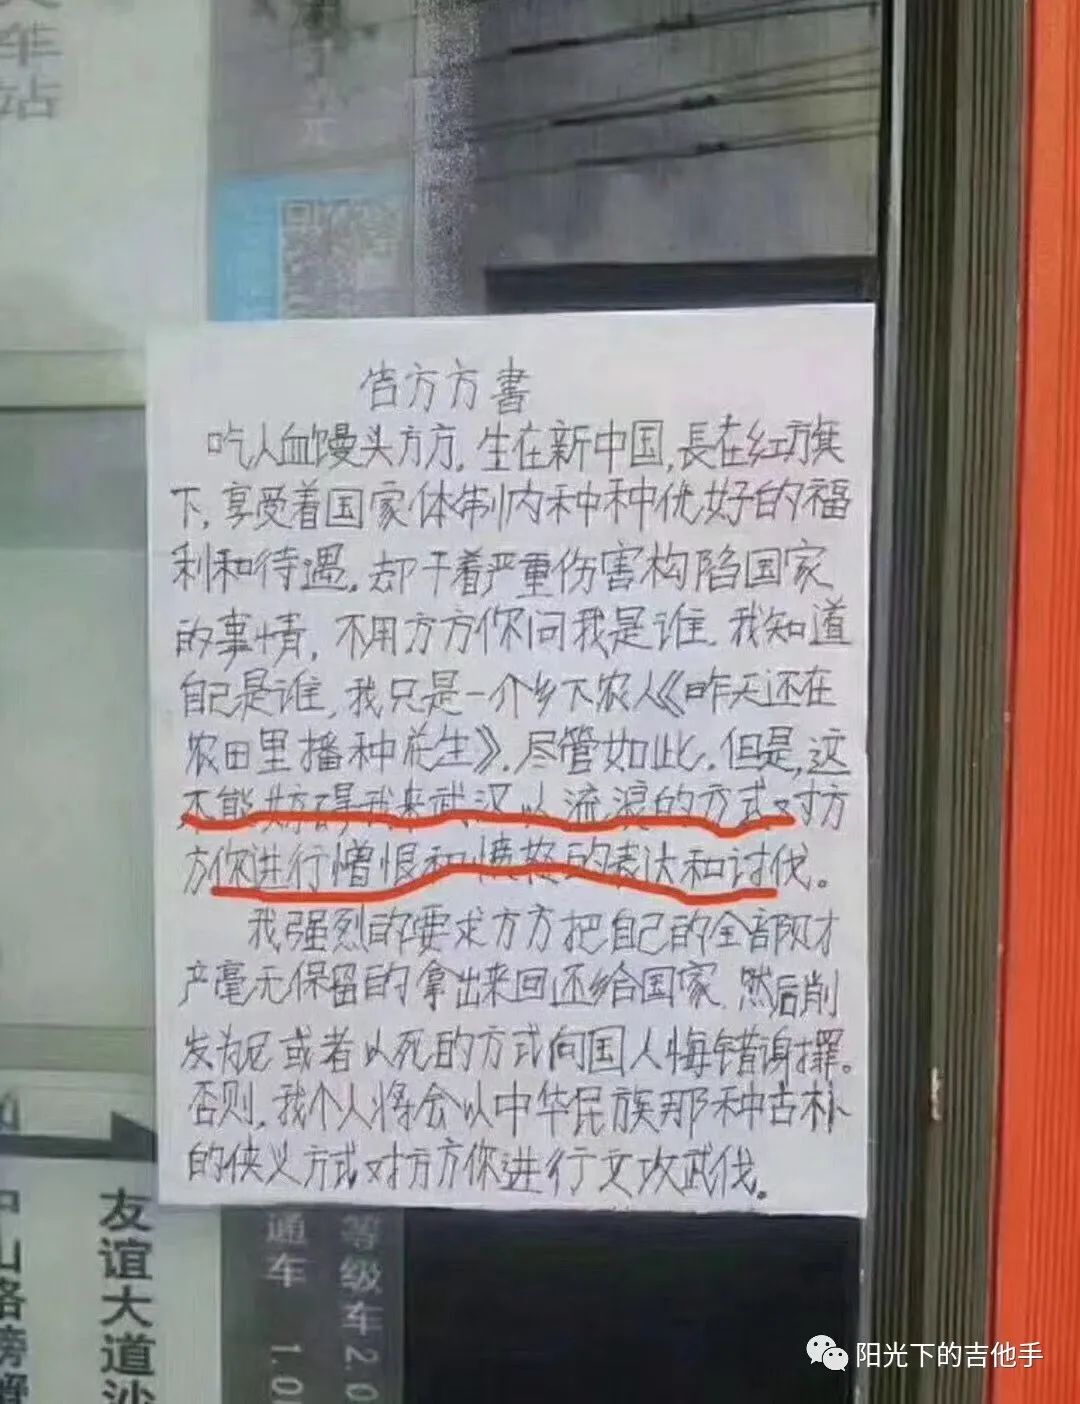 车
站
元
告方方書
吃人血馒头方方,生在新中国,長在红旗
下,享受着国家体制内种种优好的福
利和待遇,却干着严重伤害构陷国家
的事情,不用方方你问我是谁,我知道
自己是谁,我只是一个乡下农人《昨天还在
农田里播种花生》,尽管如此,但是,这
不能妨碍我来武汉以流浪的方式对方
方你进行憎恨和愤怒的表达和讨伐。
我强烈的要求方方把自己的全部财才
产毫无保留的拿出来回还给国家,然后削
发为尼或者以死的方式向国人悔错谢罪。
否则,我个人将会以中华民族那种古朴
的侠义方式对方方你进行文攻武伐。
中山路
友谊大道
通车 1.0
等级车2.0
阳光下的吉他手